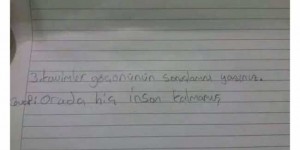 3. kavimler göçününün sonuçlarını yazınız.
Cevap: Orada hiç insan kalmamış